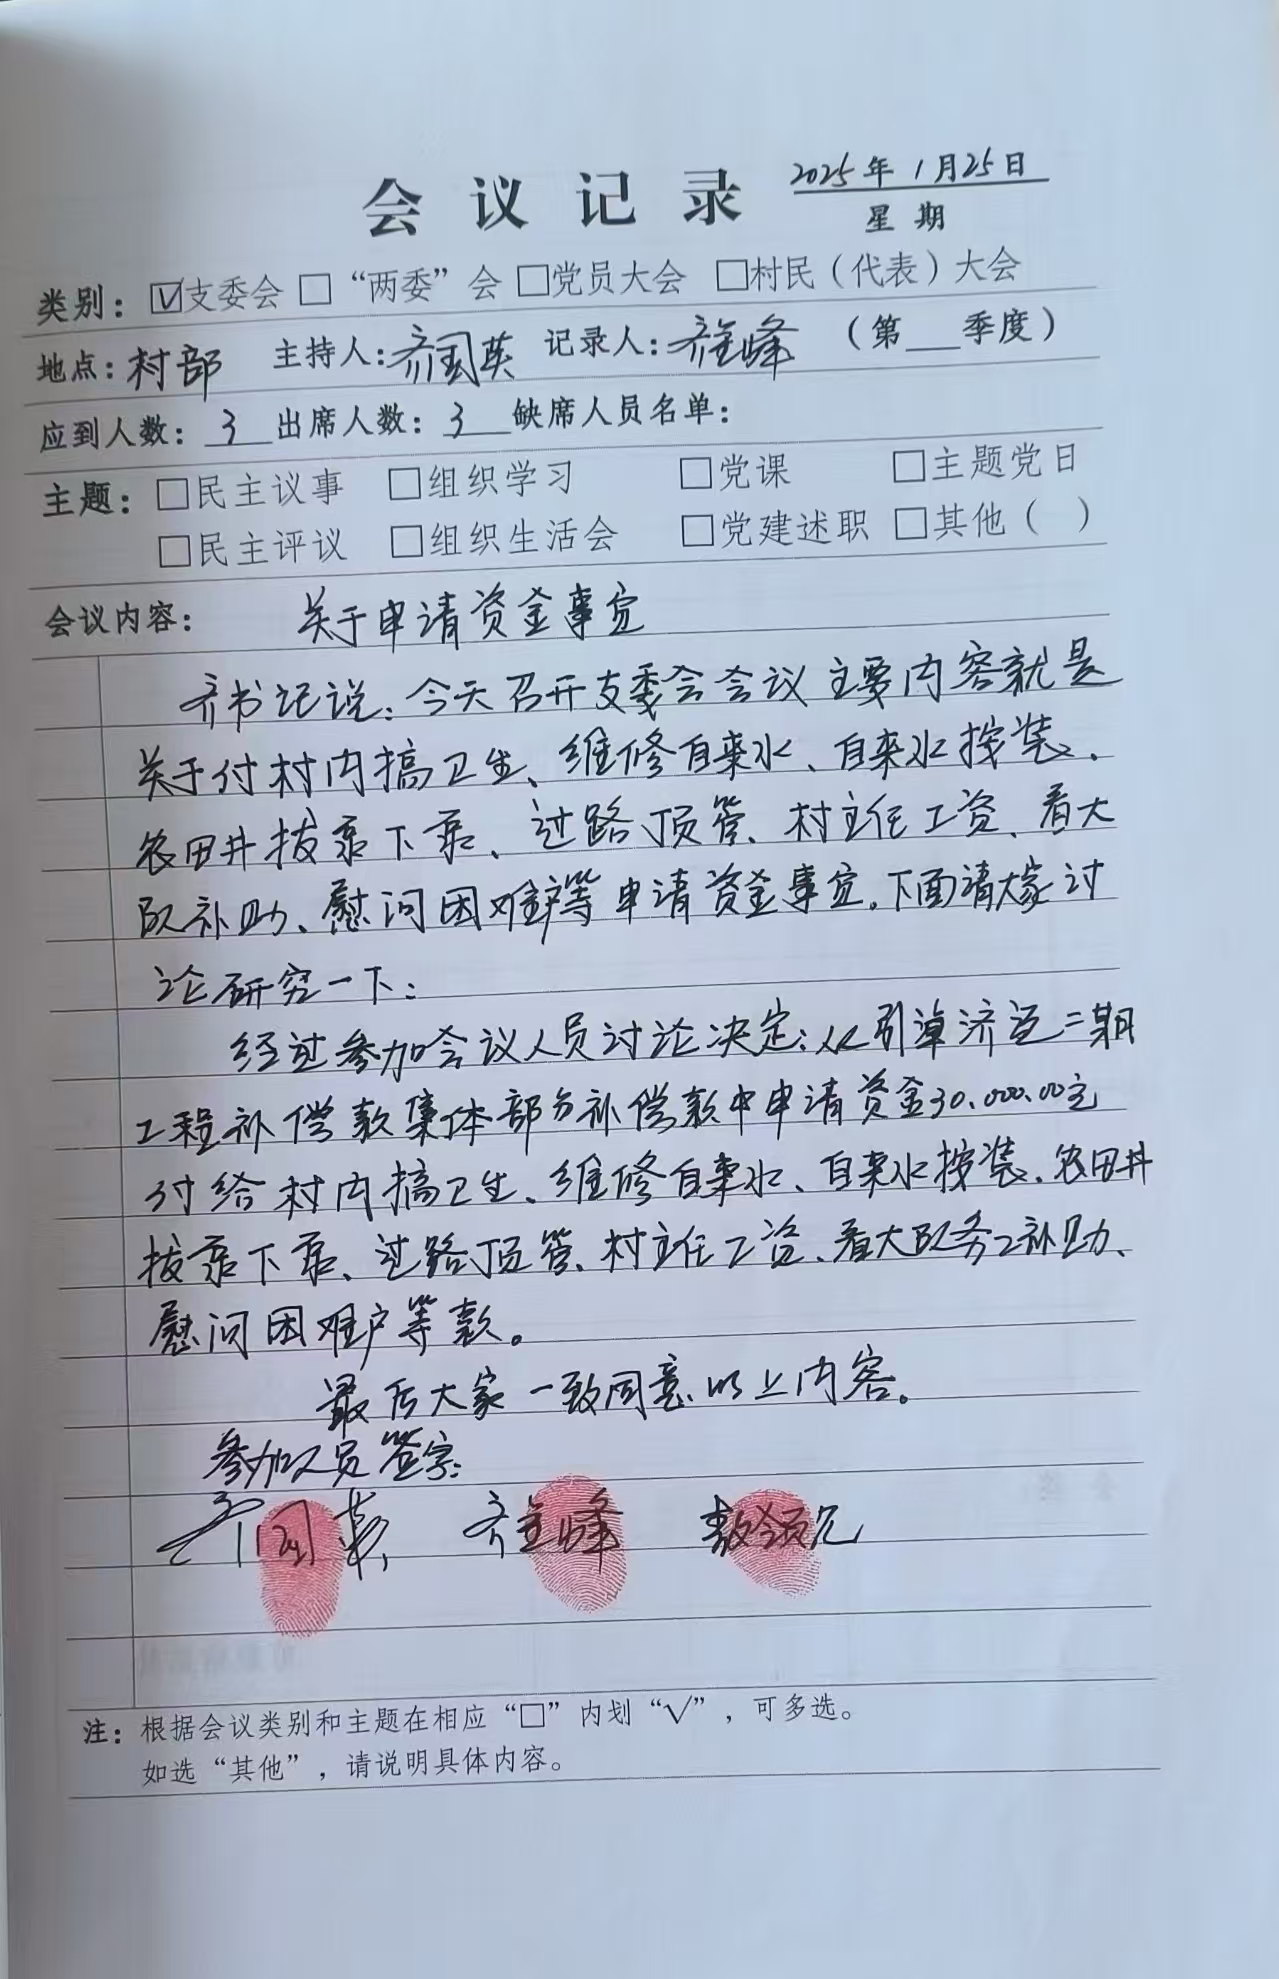 会议记录 2025年1月25日
星期
类别：☑支委会 □“两委”会 □党员大会 □村民（代表）大会
地点：村部 主持人：齐国英 记录人：齐金峰 （第___季度）
应到人数：3 出席人数：3 缺席人员名单：
主题：□民主议事 □组织学习 □党课 □主题党日
□民主评议 □组织生活会 □党建述职 □其他（ ）
会议内容： 关于申请资金事宜
齐书记说：今天召开支委会会议主要内容就是
关于付村内搞卫生、维修自来水、自来水按装、
农田井拔泵下泵、过路顶管、村主任工资、看大
队补助、慰问困难户等申请资金事宜。下面请大家讨
论研究一下：
经过参加会议人员讨论决定：从引绰济辽二期
工程补偿款集体部分补偿款中申请资金30.000.00元
付给村内搞卫生、维修自来水、自来水按装、农田井
拔泵下泵、过路顶管、村主任工资、看大队务工补助、
慰问困难户等款。
最后大家一致同意以上内容。
参加人员签字：
齐国英 齐金峰
注：根据会议类别和主题在相应“□”内划“√”，可多选。
如选“其他”，请说明具体内容。